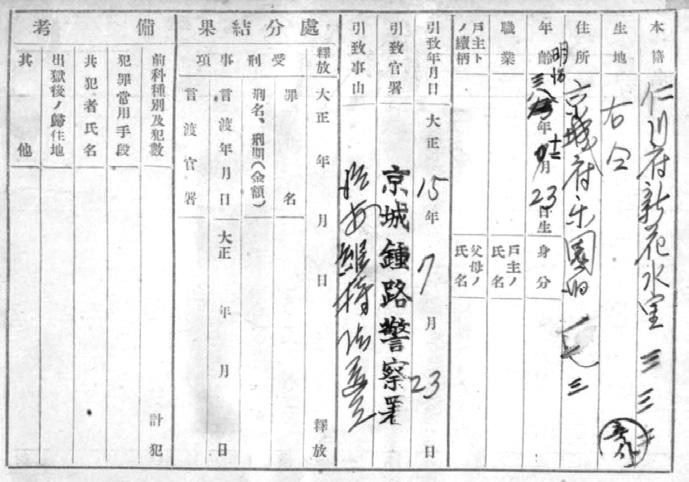 本籍 仁川府新花水里三三三
生地 右仝
住所 京城府楽園洞 一七三
年齡 明治 年十二月23日生 身分
職業 戸主ノ氏名
戸主トノ續柄 父母ノ氏名
引致年月日 大正15年7月23日
引致官署 京城鍾路警察署
引致事由 治安維持法違反
處分結果
釋放 大正 年 月 日 釋放
受刑事項
罪名
刑名、刑期(金額)
言渡年月日 大正 年 月 日
言渡官署
備考
前科種別及犯數 計 犯
犯罪常用手段
共犯者氏名
出獄後ノ歸住地
其他